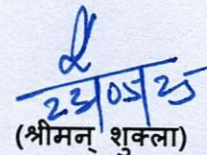 23/05/25
(श्रीमन् शुक्ला)